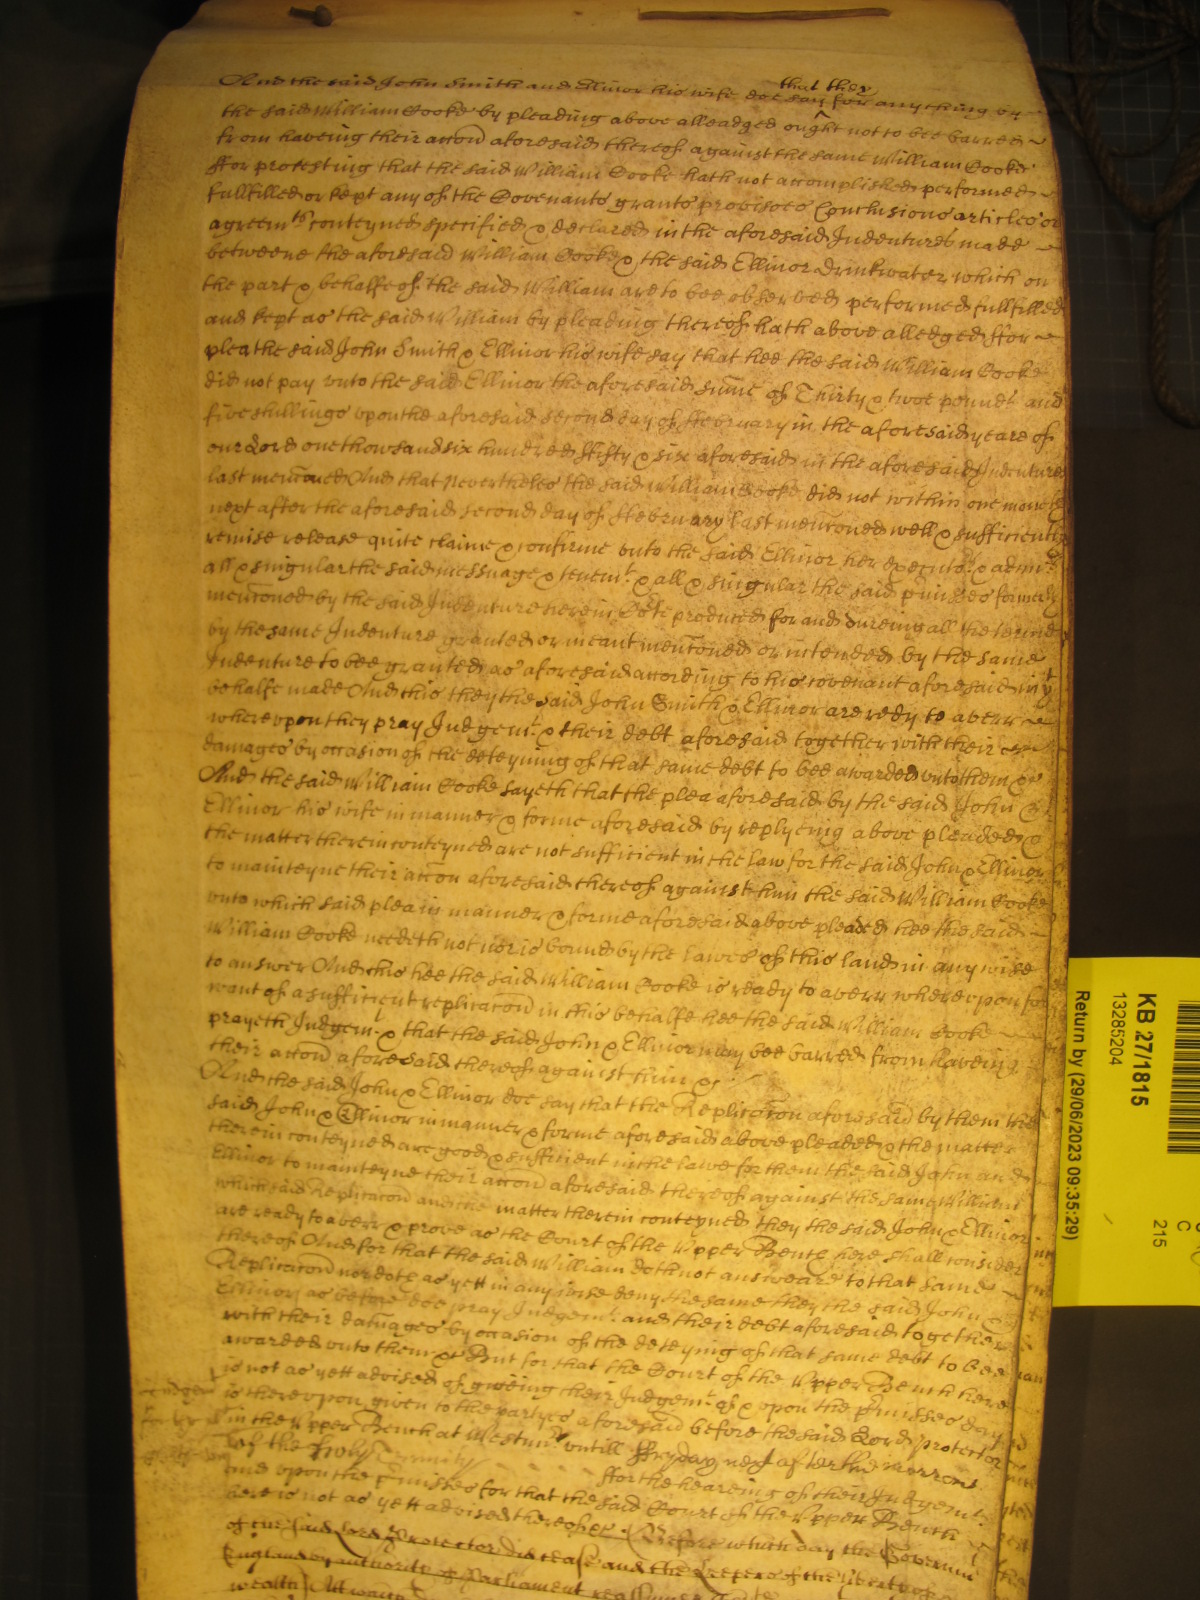 And the said John Smith and Ellinor his wife doe say that they for any thing by
the said William Cooke by pleading above alleadged ought not to bee barred
from haveing their accon aforesaid thereof against the same William Cooke
ffor protesting that the said William Cooke hath not accomplished performed
fullfilled or kept any of the Covenants grants provisoes Conclusions articles or
agreemts conteyned specified & declared in the aforesaid Indentures made
betweene the aforesaid William Cooke & the said Ellinor Drinkwater which on
the part & behalfe of the said William are to bee observed performed fullfilled
and kept as the said William by pleading thereof hath above alledged ffor
plea the said John Smith & Ellinor his wife say that hee the said William Cooke
did not pay unto the said Ellinor the aforesaid sume of Thirty & twoe pounds and
five shillings upon the aforesaid second day of ffebruary in the aforesaid yeare of
our Lord one thowsand six hundred ffifty & six aforesaid in the aforesaid Indenture
last menconed And that Neverthelesse the said William Cooke did not within one moneth
next after the aforesaid second day of ffebruary last menconed well & sufficiently
remise release quite claime & confirme unto the said Ellinor her executors & admrs
all & singular the said messuage & tenemt & all & singular the said pmisses formerly
menconed by the said Indenture herein Cort produced for and dureing all the terme
by the same Indenture granted or meant menconed or intended by the same
Indenture to bee granted as aforesaid according to his covenant aforesaid in yt
behalfe made And this they the said John Smith & Ellinor are redy to averr
whereupon they pray Judgemt & their debt aforesaid together with their
damages by occasion of the deteyning of that same debt to bee awarded unto them &c
And the said William Cooke sayeth that the plea aforesaid by the said John &
Ellinor his wife in manner & forme aforesaid by replyeing above pleaded &
the matter therein conteyned are not sufficient in the law for the said John & Ellinor
to mainteyne their accon aforesaid thereof against him the said William Cooke
unto which said plea in manner & forme aforesaid above pleaded hee the said
William Cooke needeth not nor is bound by the lawes of this land in any wise
to answer And this hee the said William Cooke is ready to averr whereupon for
want of a sufficient replicacon in this behalfe hee the said William Cooke
prayeth Judgemt & that the said John & Ellinor may bee barred from haveing
their accon aforesaid thereof against him &c
And the said John & Ellinor doe say that the Replicacon aforesaid by them the
said John & Ellinor in manner & forme aforesaid above pleaded & the matter
therein conteyned are good & sufficient in the lawe for them the said John and
Ellinor to mainteyne their accon aforesaid thereof against the same William
which said Replicacon and the matter therein conteyned they the said John & Ellinor
are ready to averr & prove as the Court of the Upper Bench here shall consider
thereof And for that the said William doth not answeare to that same
Replicacon nor doth as yett in any wise deny the same they the said John &
Ellinor as before doe pray Judgemt and their debt aforesaid together
with their damages by occasion of the deteyning of that same debt to bee
awarded unto them &c But for that the Court of the Upper Bench here
is not as yett advised of giveing their Judgemt of & upon the pmisses day
is thereupon given to the partyes aforesaid before the said Lord Protector
in the Upper Bench at Westmr untill ffryday next after the morrow
of the holy Trinity ffor the heareing of their Judgemt
and upon the pmisses for that the said Court of the Upper Bench
here is not as yett advised thereof &c Before which day the Governmt
of our said lord Protector did cease and the Keepers of the liberty of
England by authority of Parliament
wealth
KB 27/1815
13285204
Return by (29/06/2023 09:35:29)
C
215